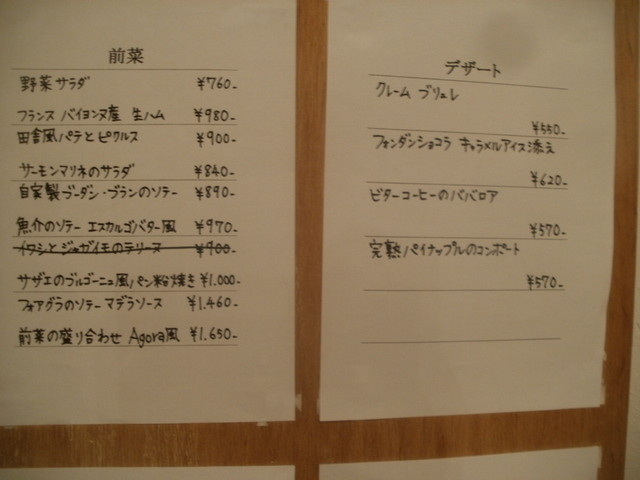 前菜
野菜サラダ ¥760-
フランス バイヨンヌ産 生ハム ¥980-
田舎風パテとピクルス ¥900-
サーモンマリネのサラダ ¥840-
自家製ブーダン・ブランのソテー ¥890-
魚介のソテー エスカルゴバター風 ¥970-
イワシとジャガイモのテリーヌ ¥900-
サザエのブルゴーニュ風パン粉焼き ¥1.000-
フォアグラのソテー マデラソース ¥1.460-
前菜の盛り合わせ Agora風 ¥1.650-
デザート
クレーム ブリュレ
¥550-
フォンダンショコラ キャラメルアイス添え
¥620-
ビターコーヒーのババロア
¥570-
完熟パイナップルのコンポート
¥570-